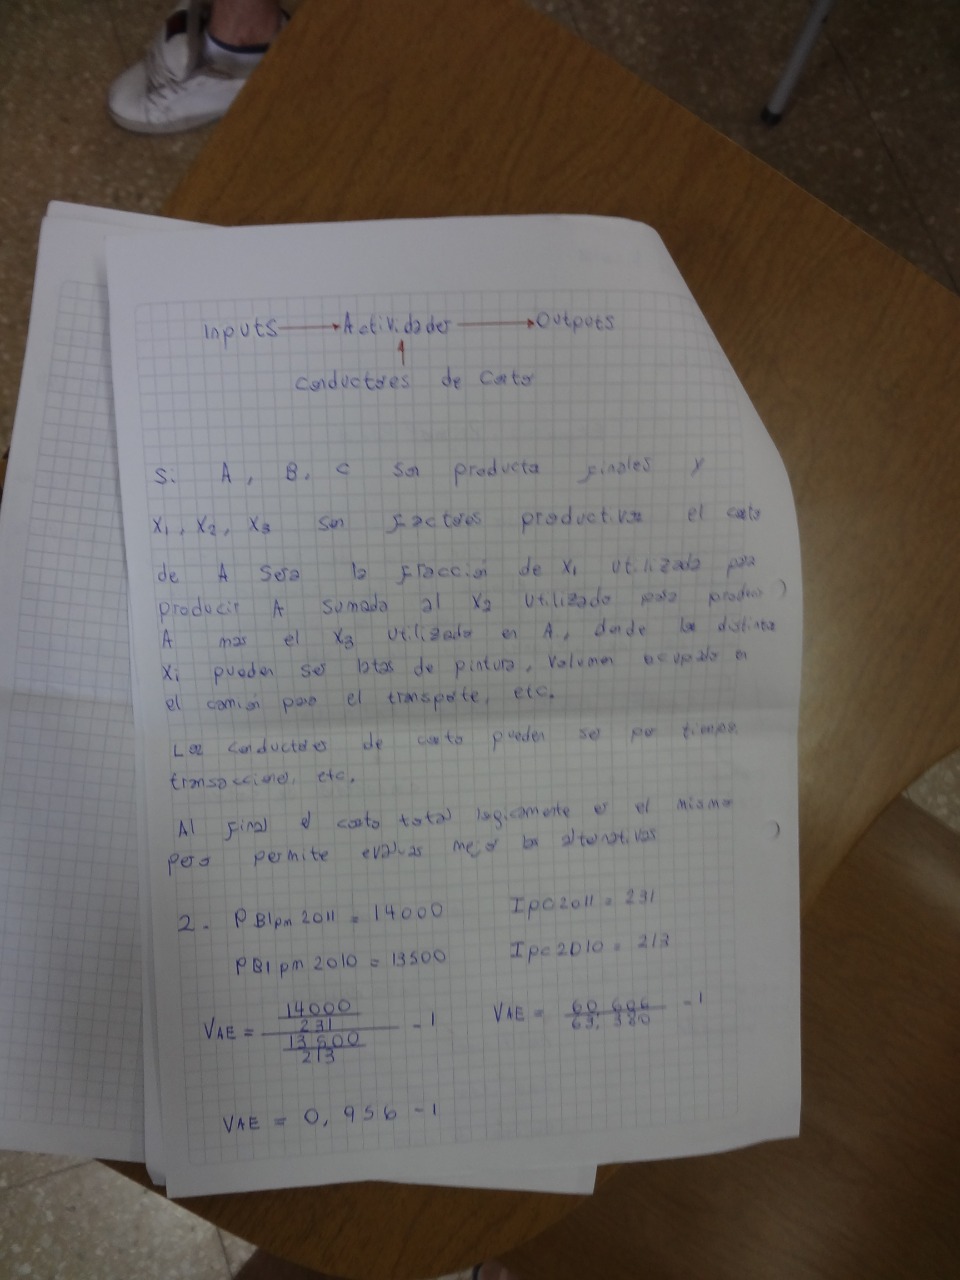 Inputs → Actividades → Outputs
↑
Conductores de Costo
Si A, B, C son productos finales y
X1, X2, X3 son factores productivos el costo
de A sera la fraccion de X1 utilizada para
producir A sumada al X2 utilizado para producir
A mas el X3 utilizado en A, donde los distintos
Xi pueden ser latas de pintura, volumen ocupado en
el camion para el transporte, etc.
Los conductores de costo pueden ser por tiempo,
transacciones, etc.
Al final el costo total logicamente es el mismo
pero permite evaluar mejor las alternativas
2. PBIpm 2011 = 14000 Ipc 2011 = 231
PBIpm 2010 = 13500 Ipc 2010 = 213
VAE = (14000/231)/(13500/213) - 1 VAE = 60,606/63,380 - 1
VAE = 0,956 - 1